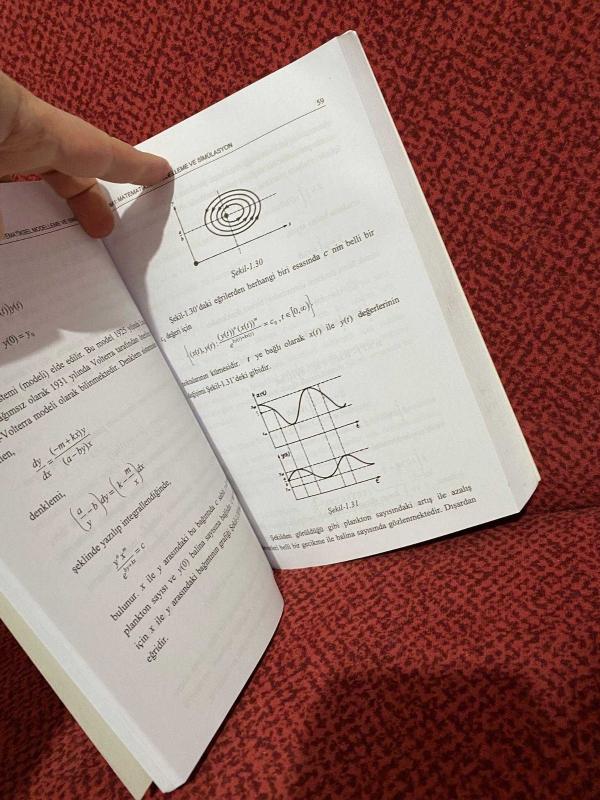 MATEMATİKSEL MODELLEME VE SİM
y(0) = y₀
sistemi (modeli) elde edilir. Bu model 1925 yılında
bağımsız olarak 1931 yılında Volterra tarafından
-Volterra modeli olarak bilinmektedir. Denklem
dy/dx = (-m + kx)y / (a - by)x
denklemi,
(a/y - b)dy = (k - m/x)dx
şeklinde yazılıp integrallendiğinde,
yᵃxᵐ / e^(by+kx) = c
bulunur. x ile y arasındaki bu bağıntıda c
plankton sayısı ve y(0) balina sayısına
için x ile y arasındaki bağıntının grafiği
eğridir.
MATEMATİ LLEME VE SİMÜLASYON
59
Şekil-1.30
Şekil-1.30'daki eğrilerden herhangi biri esasında c nin belli bir
c₀ değeri için
{(x(t), y(t)) : (y(t))ᵃ(x(t))ᵐ / e^(by(t)+kx(t)) = c₀, t ∈ [0,∞)}
noktalarının kümesidir. t ye bağlı olarak x(t) ile y(t) değerlerinin
değişimi Şekil-1.31'deki gibidir.
x(t)
t
y(t)
t
Şekil-1.31
Şekilden görüldüğü gibi plankton sayısındaki artış ile azalış
belli bir gecikme ile balina sayısında gözlenmektedir. Dışardan